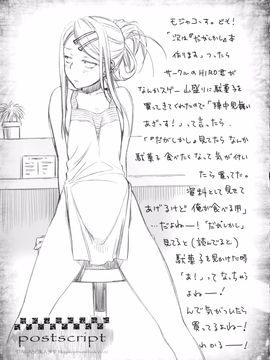 モジャコでーす。どぞ!
「次は『だがしかし』本
作ります」つったら
サークルのHIRO君が
なんかスゲー山盛りに駄菓子を
買ってきてくれたので「陣中見舞い
あざーす!」って言ったら、
「『だがしかし』見てたらなんか
駄菓子食べたくなって気が付い
たら買ってた。
資料として見せて
あげるけど俺が食べる用」
…だよねー!『だがしかし』
見てると(読んでると)
駄菓子を見かけた時
「あ!」ってなっちゃう
よねー!
んで気がついたら
買ってるよねー!
わかるー!
postscript